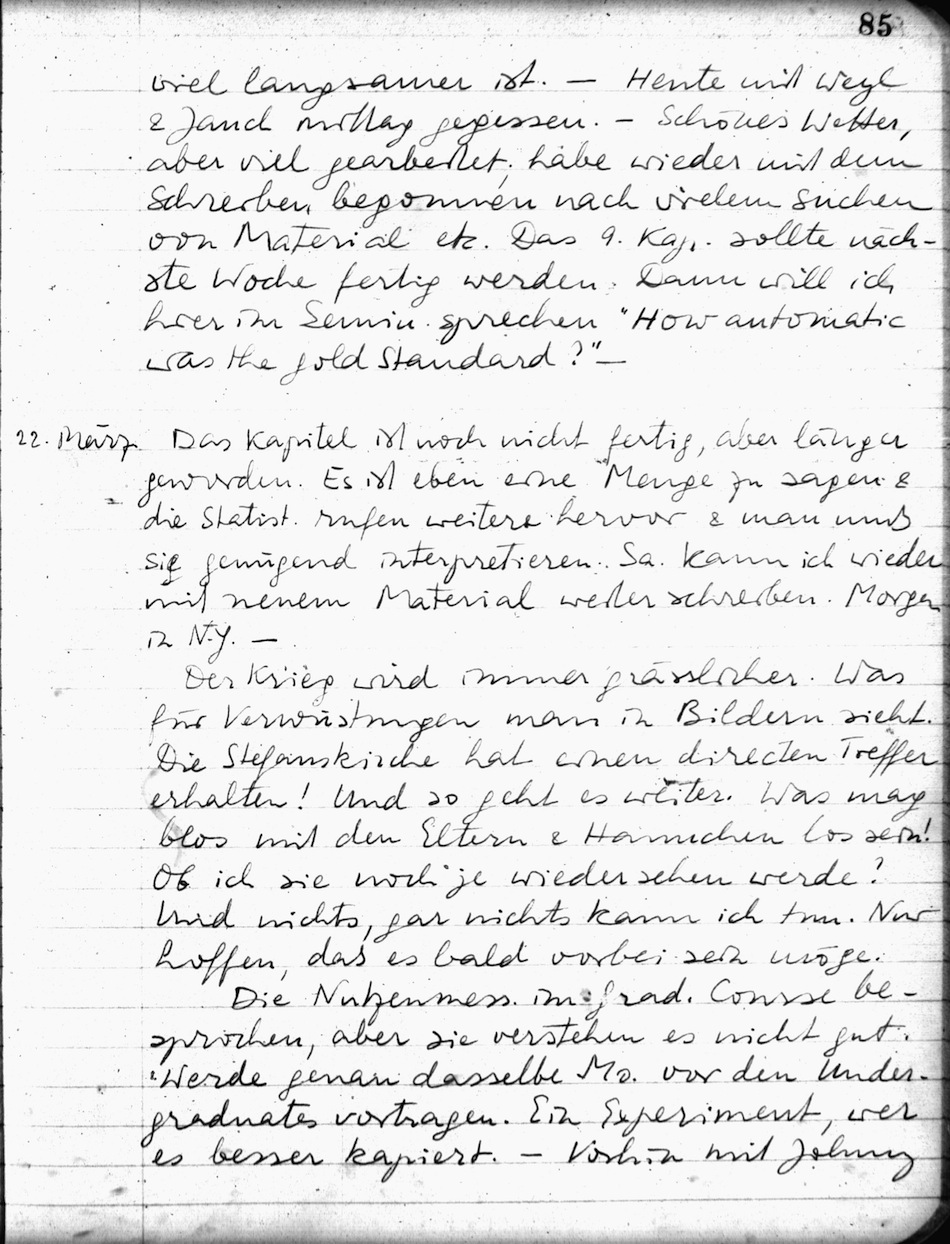 85
viel langsamer ist. — Heute mit Weyl
& Jauch mittag gegessen. – Schönes Wetter,
aber viel gearbeitet, habe wieder mit dem
Schreiben begonnen nach vielem Suchen
von Material etc. Das 9. Kap. sollte näch-
ste Woche fertig werden. Dann will ich
hier im Semin. sprechen "How automatic
was the gold Standard?" —
22. März. Das Kapitel ist noch nicht fertig, aber länger
geworden. Es ist eben eine Menge zu sagen &
die Statist. rufen weitere hervor & man muß
sie genügend interpretieren. Sa. kann ich wieder
mit neuem Material weiter schreiben. Morgen
in N.Y. —
Der Krieg wird immer grässlicher. Was
für Verwüstungen man in Bildern sieht.
Die Stefanskirche hat einen directen Treffer
erhalten! Und so geht es weiter. Was mag
blos mit den Eltern & Hannchen los sein!
Ob ich sie noch je wiedersehen werde?
Und nichts, gar nichts kann ich tun. Nur
hoffen, daß es bald vorbei sein möge.
Die Nutzenmess. im grad. Course be-
sprochen, aber sie verstehen es nicht gut.
Werde genau dasselbe Mo. vor den Under-
graduates vortragen. Ein Experiment, wer
es besser kapiert. – Vorhin mit Johnny